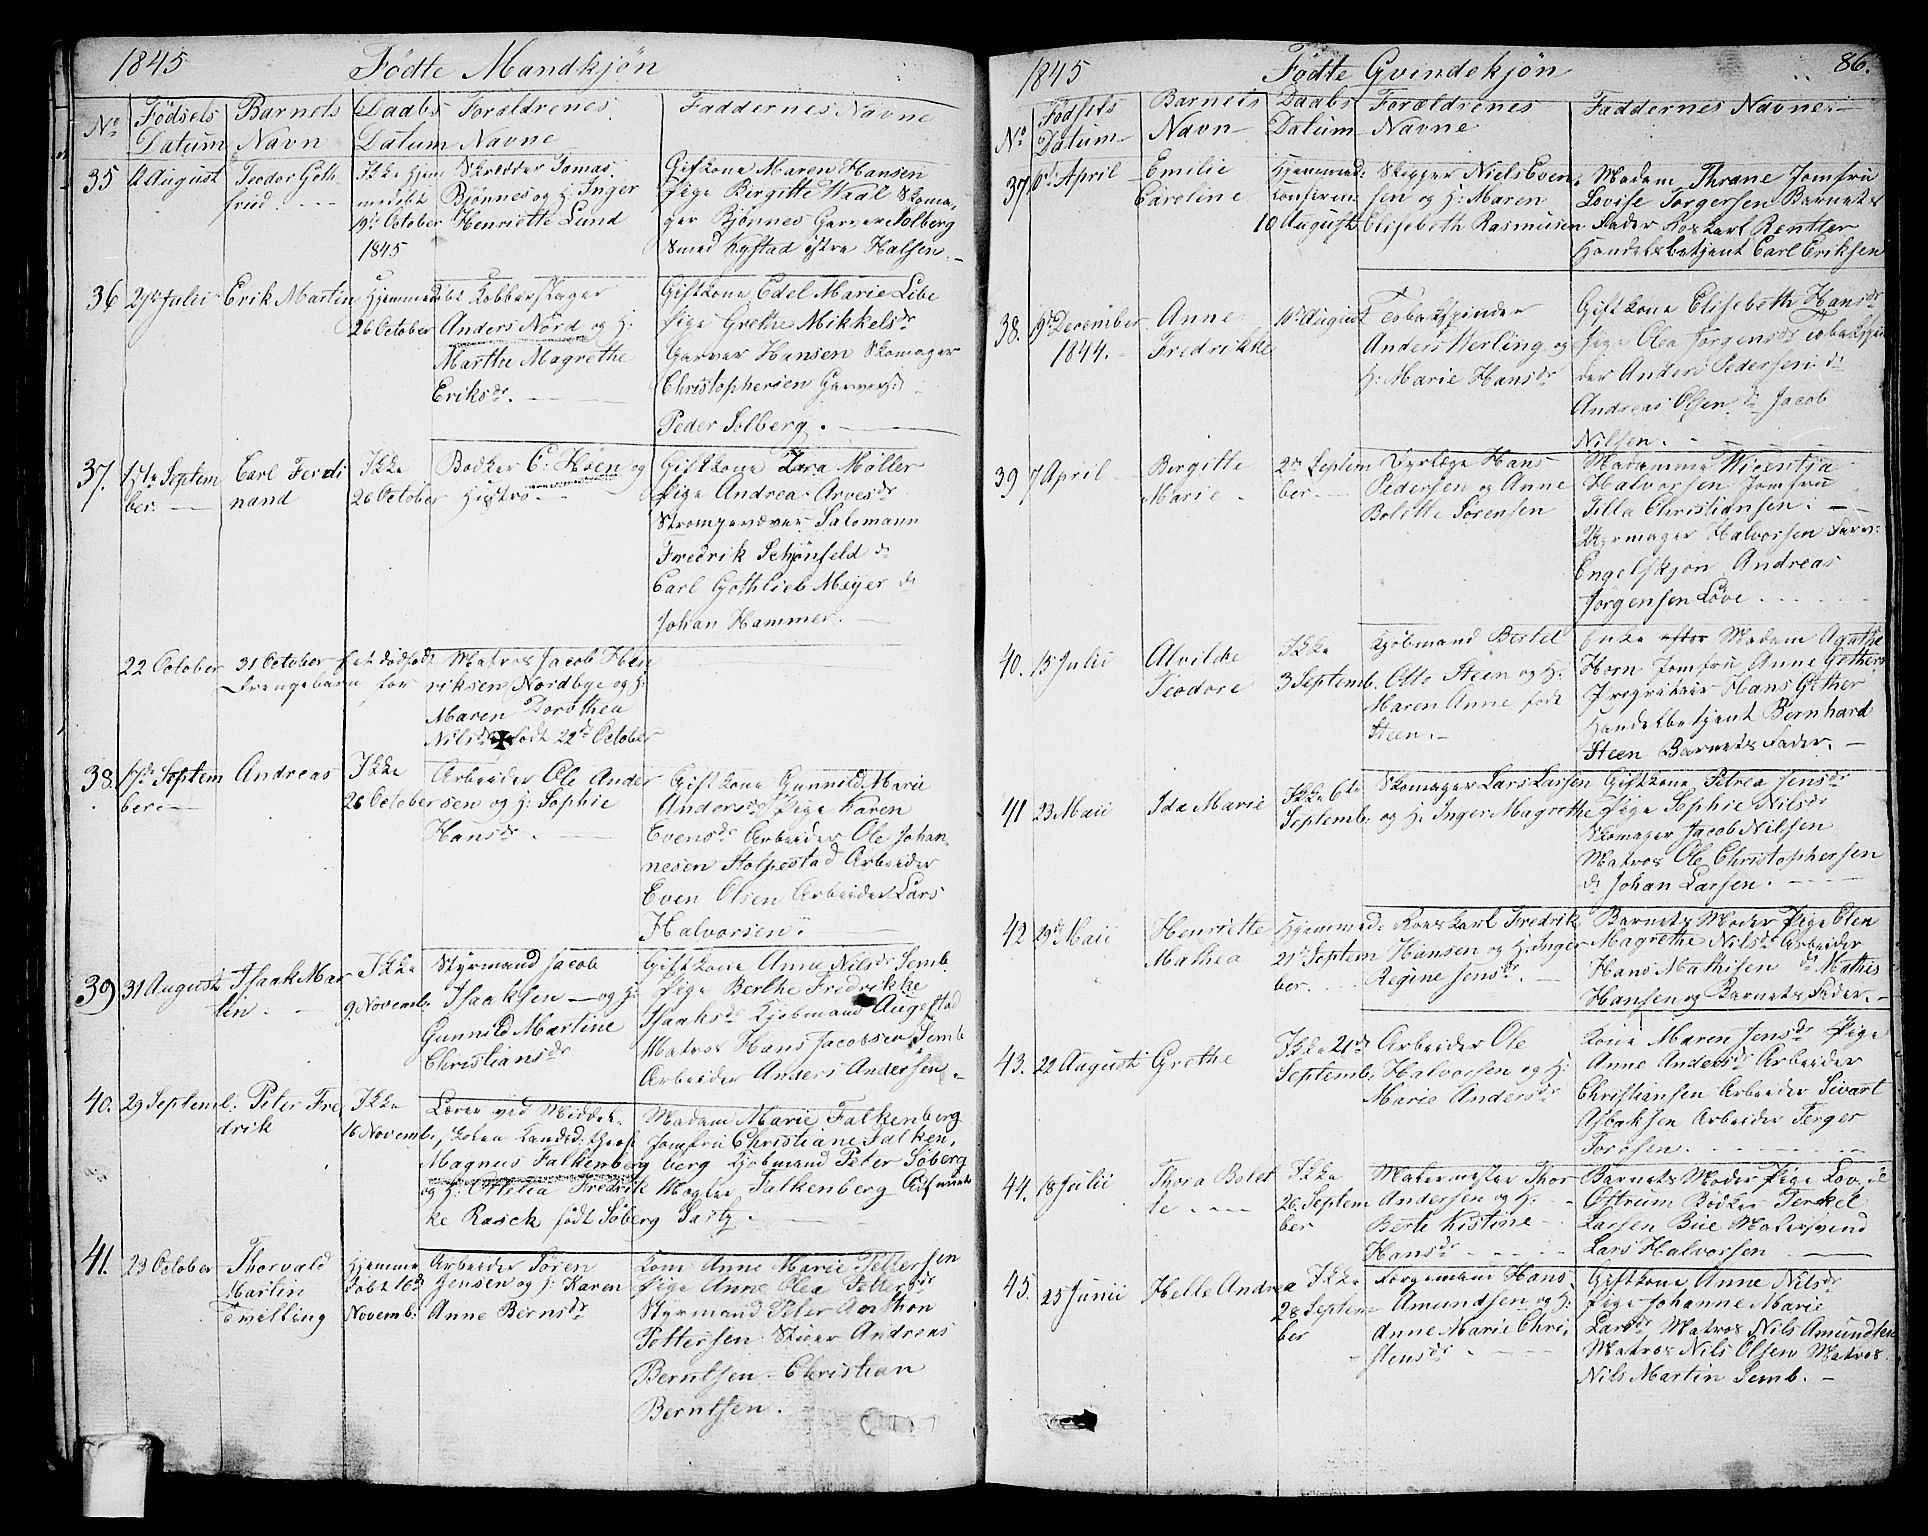 1845 Fødte Mandkjøn
No Fødsels Datum Barnets Navn Daabs Datum Forældrenes Navne Faddernes Navne
35 August Teodor Gothfried Ikke Hjemmedøbt 19de October 1845
Skredder Tomas
Bjønnes og H: Inger
Henriette Lund
Giftkone Maren Hansen
Pige Birgitte Waal Skoma-
ger Bjønnes Garver Solberg
Smed Kystad istra Halsen.
36 21de Julii Erik Martin Hjemmedøbt 26 October
Kobberslager
Anders Nord og H:
Marthe Magrethe
Eriksdr.
Giftkone Edel Marie Libe
Pige Grethe Mikkelsdr
Garver Hansen Skomager
Christophersen Garversd
Peder Solberg.
37. September Carl Ferdinand Ikke 26 October
Bødker C: Høen og
Hustro
Giftkone Zara Møller
Pige Andrea Arvesdr
Strømpevæver Salomann
Fredrik Schønfeld do
Carl Gothlieb Meijer do
Johan Hammer.
22 October 31 October et dødfødt
Drengebarn for
Matros Jacob Hen
riksen Nordbye og H:
Maren Dorothea
Nilsdr født 22de October
38. 17de September Andreas Ikke 26 October
Arbeider Ole Ander
sen og H: Sophie
Hansdr.
Giftkone Gunnild Marie
Andersdr Pige Karen
Evensdr Arbeider Ole Johan-
nesen Stolpestad Arbeider
Even Olsen Arbeider Lars
Halvorsen
39 31 August Isaak Martin. Ikke 9. Novemb:
Styrmand Jacob
Isaaksen og H:
Gunnild Martine
Christiansdr
Giftkone Anne Nilsdr Semb
Pige Berthe Fredrikke
Isaaksdr Kjøbmand Augestad
Matros Hans Jacobsen Semb
Arbeider Anders Andersen.
40. 29 Septemb. Peter Fredrik Ikke 16 Novemb:
Lærer ved Middel-
skolen Kandid: theol
Magnus Falkenberg
og H: Ottilia Fredrik
ke Rasck født Søberg
Madam Marie Falkenberg
Jomfru Christiane Falken-
berg Kjøbmand Peter Søberg
Mogler Falkenberg
Sartz.
41. 23 October Thorvald Martin Tvilling Hjemmedøbt 16de Novemb:
Arbeider Søren
Jensen og H: Karen
Anne Berntsdr
Kone Anne Marie Pettersen
Pige Anne Olea Pettersdr
Styrmand Peter Anthon
Pettersen Stuer Andreas
Berntsen Christian
Berntsen.
1845 Fødte Qvindekjøn 86.
No Fødsels Datum Barnets Navn Daabs Datum Forældrenes Navne Faddernes Navne.
37 6te April Emilie Caroline Hjemmed: Konferen: 10 August
Skipper Niels Even
sen og H: Maren
Elisebeth Rasmusen
Madam Thrane Jomfru
Lovise Torgersen Barnets
Fader Roskarl Rentler
Handelsbetjent Carl Eriksen
38. 19de December 1844. Anne Fredrikke 10de August
Tobakspinder
Anders Werling og
H: Marie Hansdr
Giftkone Elisebeth Hansdr
Pige Olea Jørgensdr Tobakspin
der Anders Pedersen do
Andreas Olsen do Jacob
Nilsen.
39 7 April Birgitte Marie 2den September
Dyrlæge Hans
Pedersen og Anne
Bolette Sørensen
Madamme Wicentja
Halvorsen Jomfru
Tilla Christiansen.
Uhrmager Halvorsen Farv:
Engelskjøn Andreas
Jørgensen Løve.
40. 15 Julii Alvilde Teodore Ikke 3 Septemb.
Kjøbmand Bertel
Otto Steen og H:
Maren Anne født
Steen.
Enke after Madam Agathe
Horn Jomfru Anne Gether
Proprietair Hans Gether
Handelbetjent Bernhard
Steen Barnets Fader.
41 23 Maii Ida Marie Ikke 6te Septemb:
Skomager Lars Larsen
og H: Inger Magrethe
Giftkone Petrea Jensdr
Pige Sophie Nilsdr
Skomager Jacob Nilsen
Matros Ole Christophersen
do Johan Larsen.
42 29de Maii Henriette Mathea Hjemmed: 21de September.
Roeskarl Fredrik
Hansen og H: Inger
Regine Jensdr.
Barnets Moder Pige Elen
Magrethe Nilsdr Arbeider
Hans Mathisen do Mathis
Hansen og Barnets Fader.
43. 22 August Grethe Ikke 21de Septemb:
Arbeider Ole
Halvorsen og H:
Marie Andersdr
Kone Maren Jensdr Pige
Anne Andersdr Arbeider
Christiansen Arbeider Sivart
Isbaksen Arbeider Terger
Torosen.
44. 18 Julii Thora Bolette Ikke 26 September
Malermester Thor
Andersen og H:
Berte Kistine
Hansdr
Barnets Moder Pige Lovise
Ottrum Bødker Terkel
Larsen Bue Malersvend
Lars Halvorsen
45. 25 Junii Helle Andrea Ikke 28 September
Færgemand Hans
Amundsen og H:
Anne Marie Chri-
stensdr
Giftkone Anne Nilsdr
Pige Johanne Marie
Larsdr Matros Nils Amundsen
Matros Nils Olsen Matros
Nils Martin Semb.